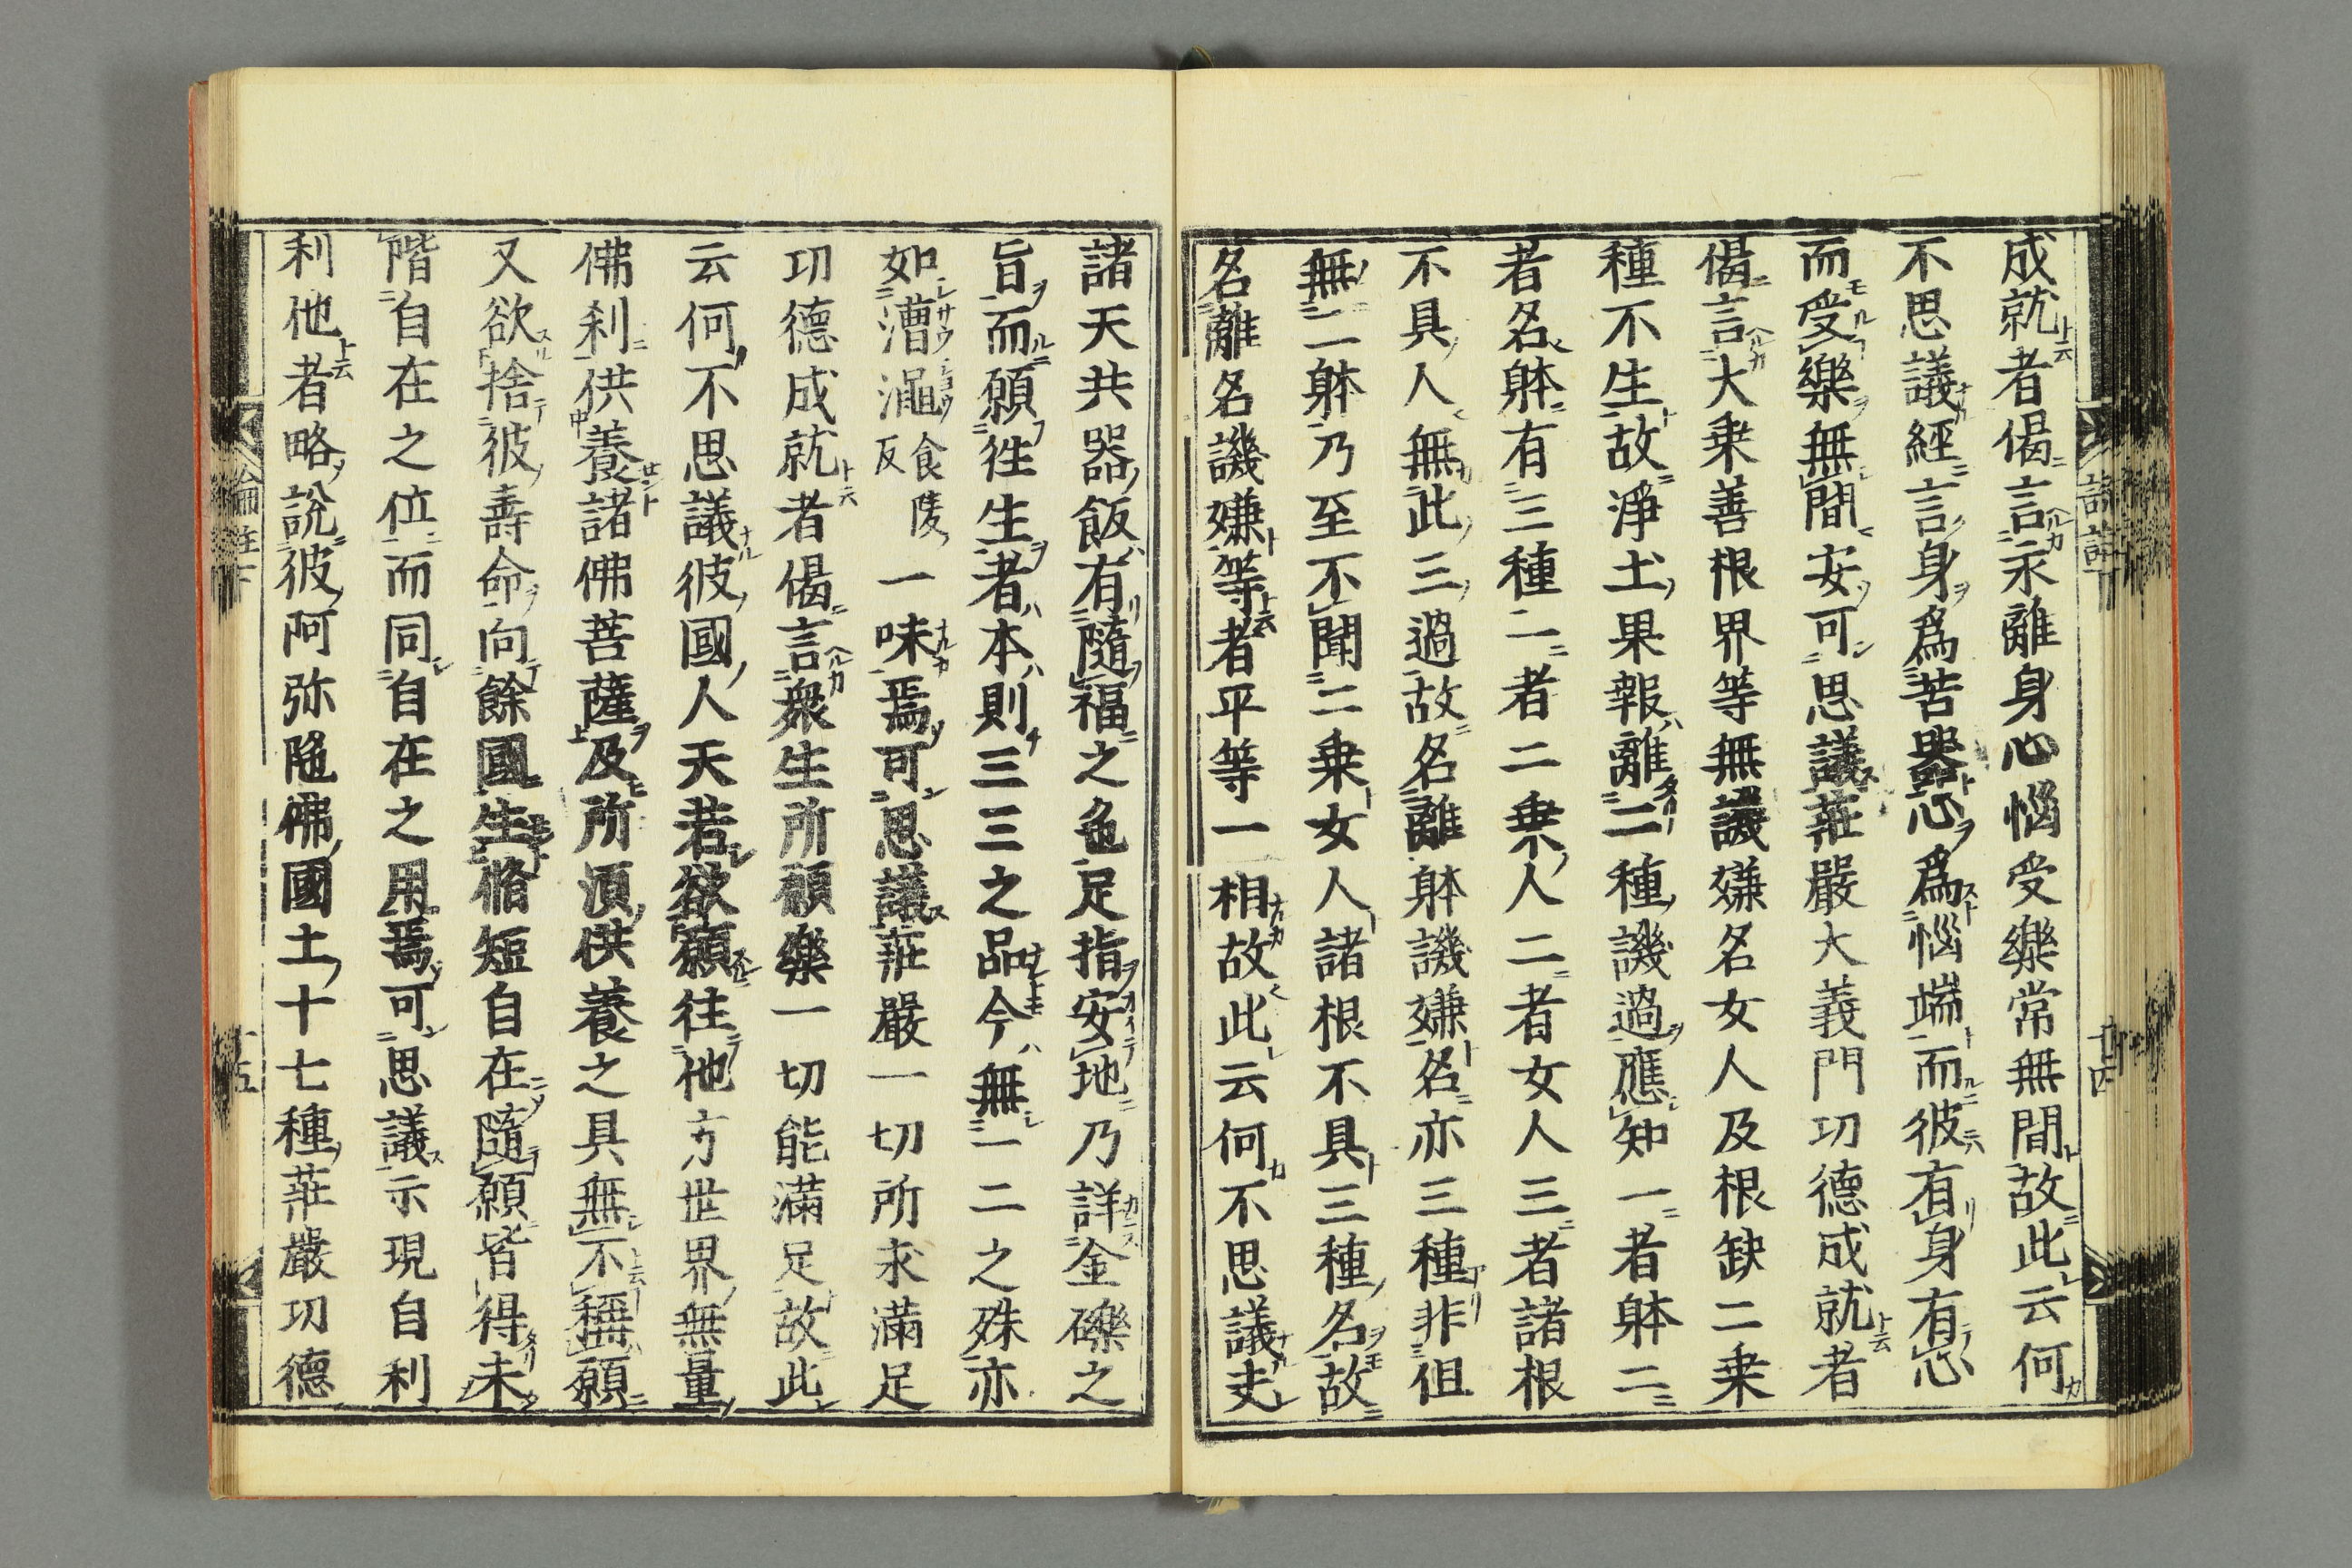 成就者偈言永離身心惱受樂常無間故此云何
不思議經言身爲苦器心爲惱端而彼有身有心
而受樂無間安可思議莊嚴大義門功德成就者
偈言大乗善根界等無譏嫌名女人及根缺二乗
種不生故淨土果報離二種譏過應知一者躰二
者名躰有三種一者二乗人二者女人三者諸根
不具人無此三過故名離躰譏嫌名亦三種非但
無三躰乃至不聞二乗女人諸根不具三種名故
名離名譏嫌等者平等一相故此云何不思議夫
諸天共器飯有隨福之色足指安地乃詳金礫之
旨而願徃生者本則三三之品今無一二之殊亦
如漕澠食陵反一味焉可思議莊嚴一切所求滿足
功德成就者偈言衆生所願樂一切能滿足故此
云何不思議彼國人天若欲願往他方世界無量
佛刹供養諸佛菩薩及所須供養之具無不稱願
又欲捨彼壽命向餘國生脩短自在隨願皆得未
階自在之位而同自在之用焉可思議示現自利
利他者略説彼阿弥陁佛國土十七種莊嚴功德
論註下
十五